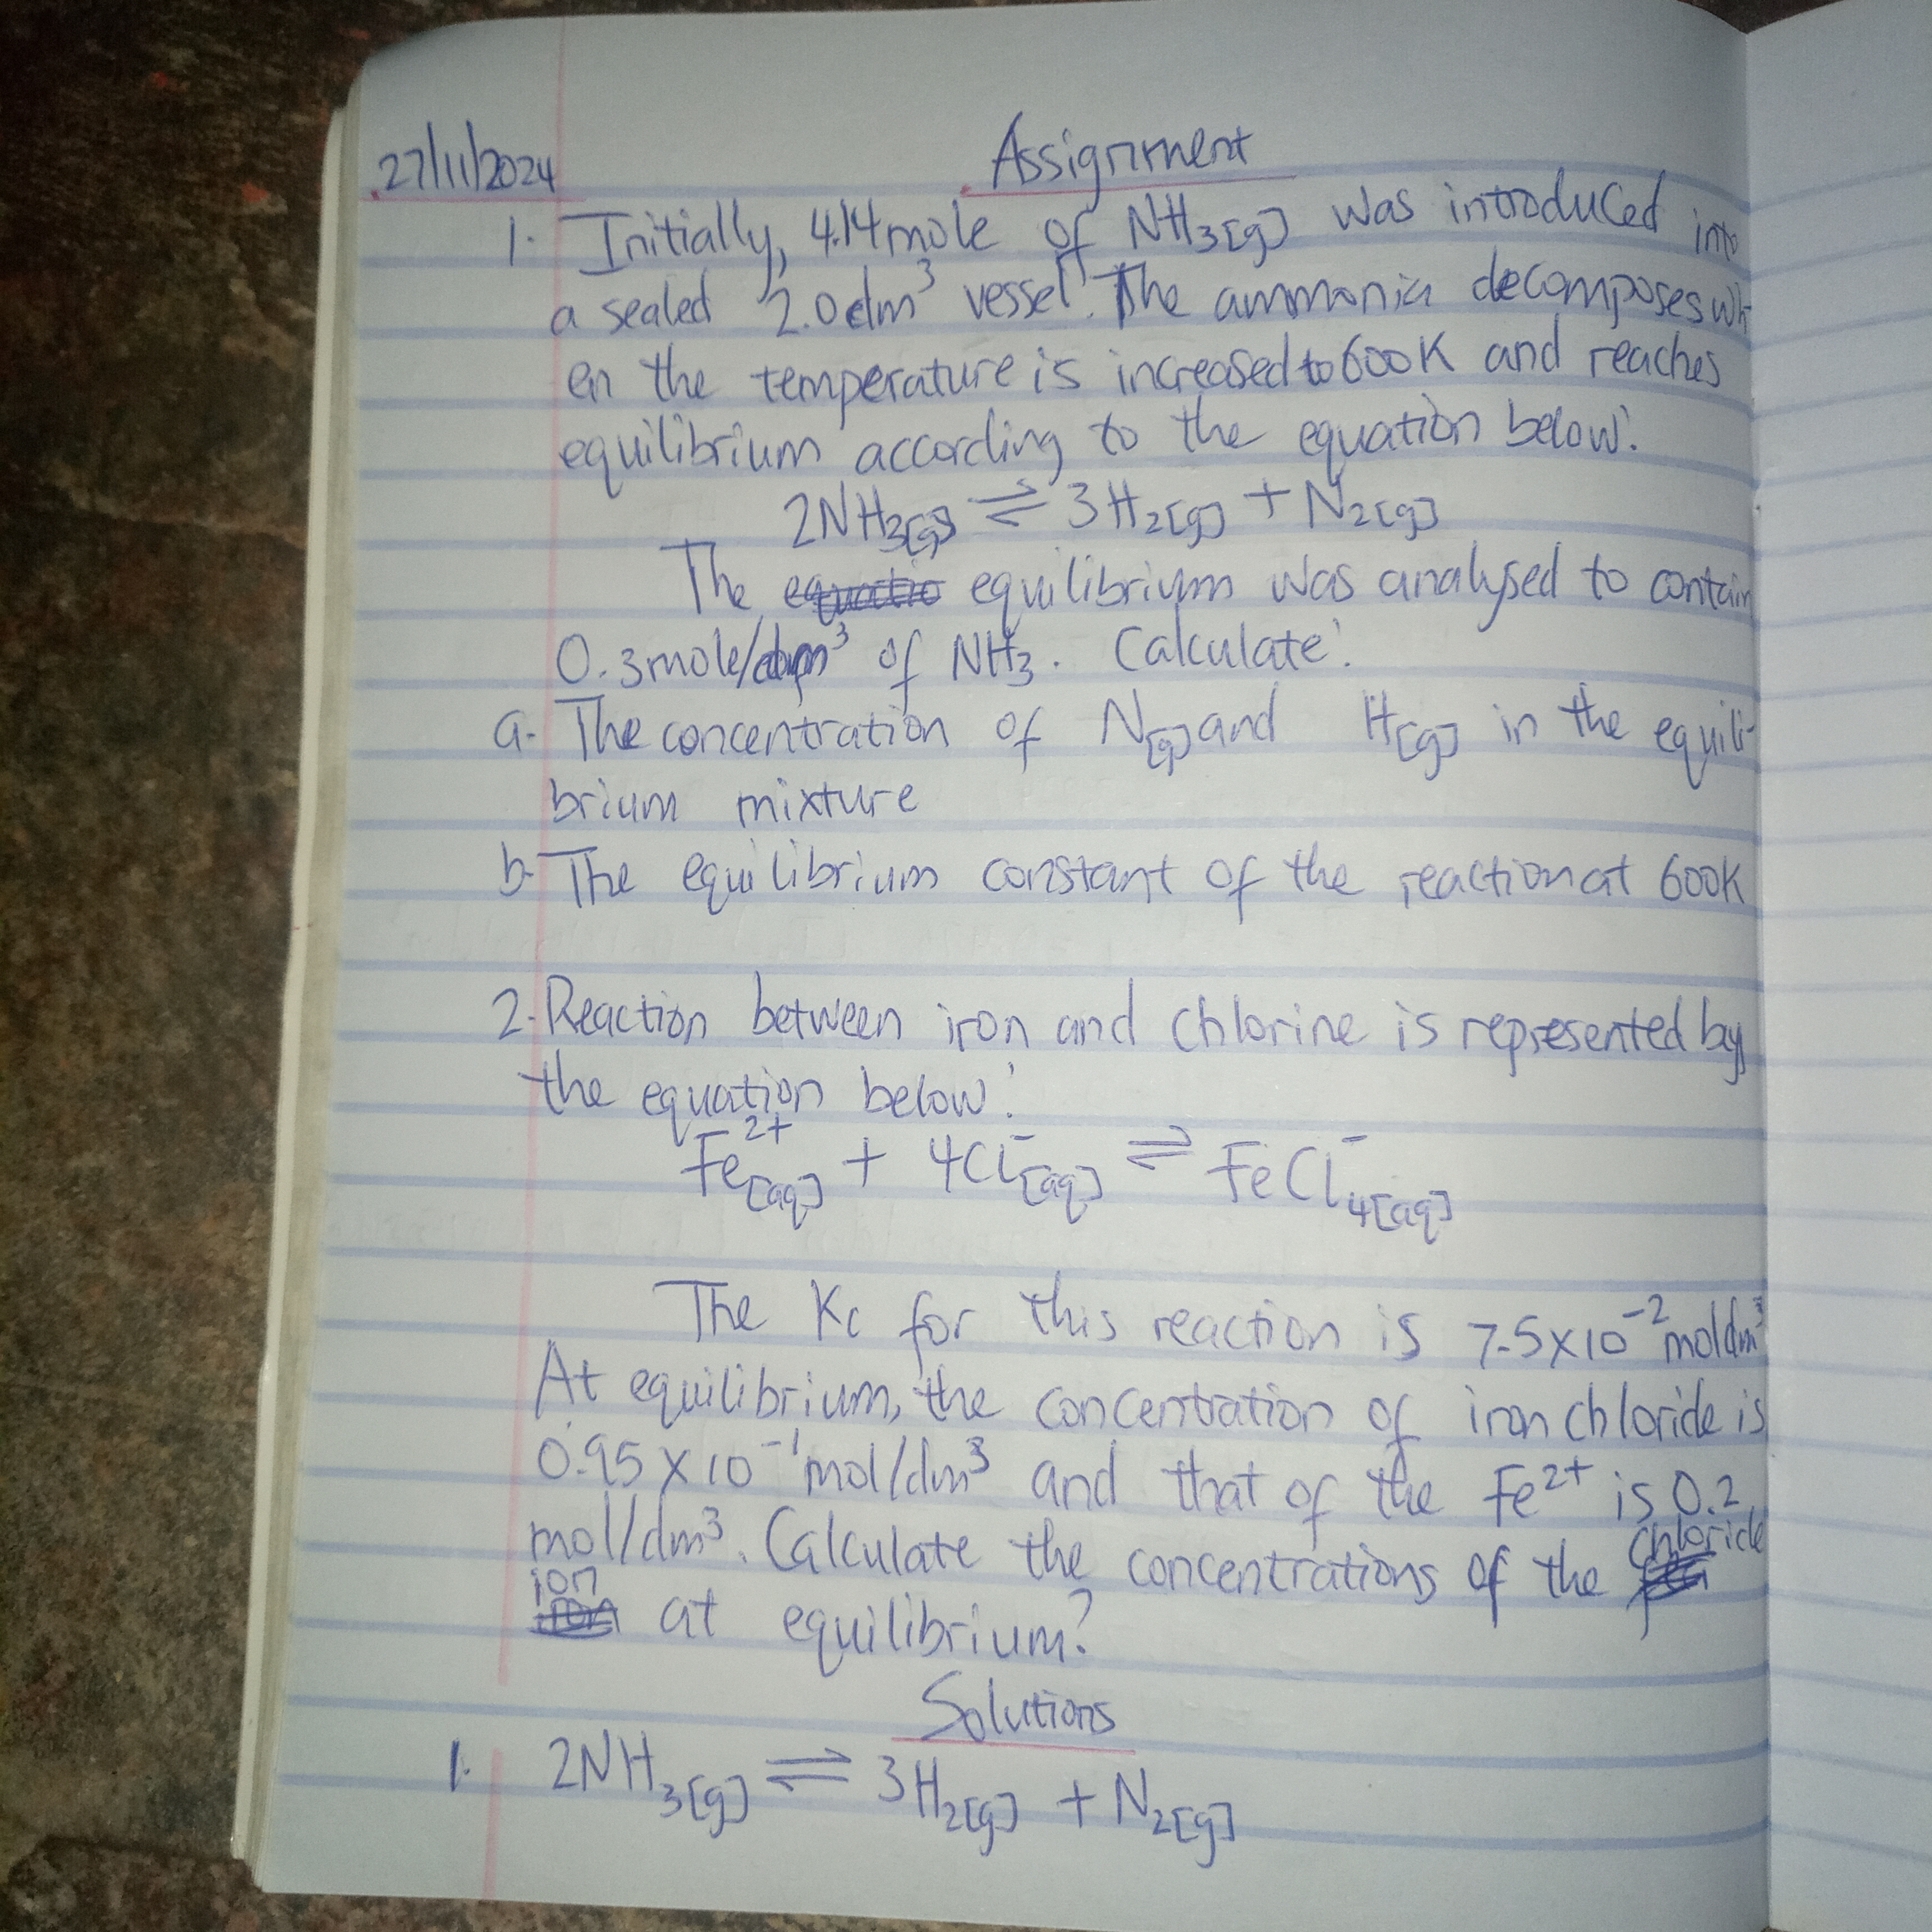 27/11/2024 Assignment
1. Initially, 4.14 mole of NH3[g] was introduced into
a sealed 2.0dm³ vessel. The ammonia decomposes wh-
en the temperature is increased to 600K and reaches
equilibrium according to the equation below:
2NH3[g] ⇌ 3H2[g] + N2[g]
The equilibrium was analysed to contain
0.3mole/dm³ of NH3. Calculate:
a. The concentration of N[g] and H[g] in the equili-
brium mixture
b. The equilibrium constant of the reaction at 600K
2. Reaction between iron and chlorine is represented by
the equation below:
Fe²⁺[aq] + 4Cl⁻[aq] ⇌ FeCl⁻4[aq]
The Kc for this reaction is 7.5×10⁻² moldm³
At equilibrium, the concentration of iron chloride is
0.95 × 10⁻¹ mol/dm³ and that of the Fe²⁺ is 0.2
mol/dm³. Calculate the concentrations of the chloride
ion at equilibrium?
Solutions
1. 2NH3[g] ⇌ 3H2[g] + N2[g]